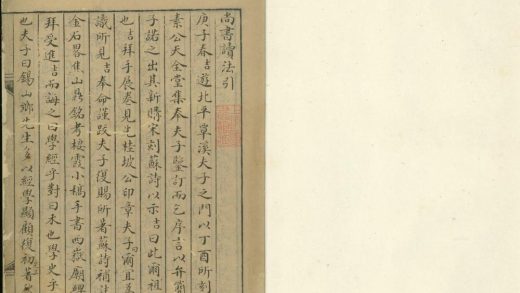 尚書讀法引
庚子春吉遊北平覃溪夫子之門以丁酉所刻
素公天全堂集奉夫子鑒訂而乞序言以弁簡
子諾之出其新購宋刻蘇詩以示吉曰此爾祖
也吉拜手展卷見先桂坡公印章夫子曰爾且
識所見吉奉命謹跋夫子復賜所著蘇詩補註
金石畧焦山鼎銘考棲霞小稿手書西嶽廟碑
拜受進吉而誨之曰學經乎對曰未也學史乎
也夫子曰錫山鄉先生多以經學顯顧復初著